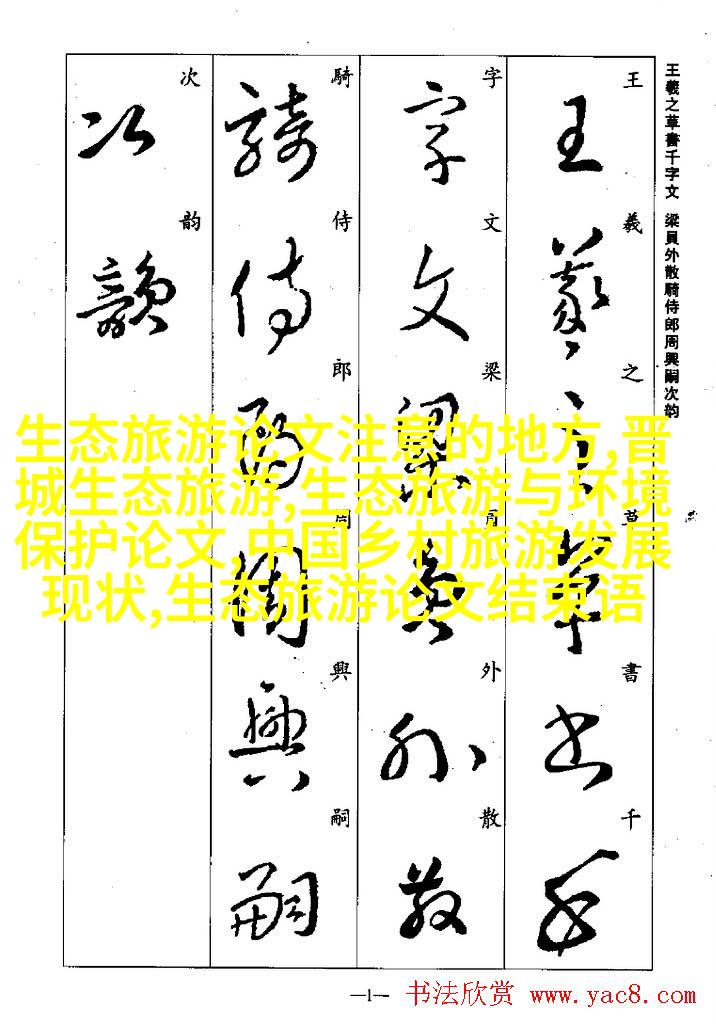 王羲之草書千字文 梁員外散騎侍郎周興嗣次韵
王羲之草書千
王羲之草書千
字文梁員外散
字文梁員外散
騎侍郎周興嗣
騎侍郎周興嗣
次韵
次韵
生态旅游论文注意的地方,晋
城生态旅游,生态旅游与环境
保护论文,中国乡村旅游发展
现状,生态旅游论文结束语
—1—
书法欣赏 www.yac8.com